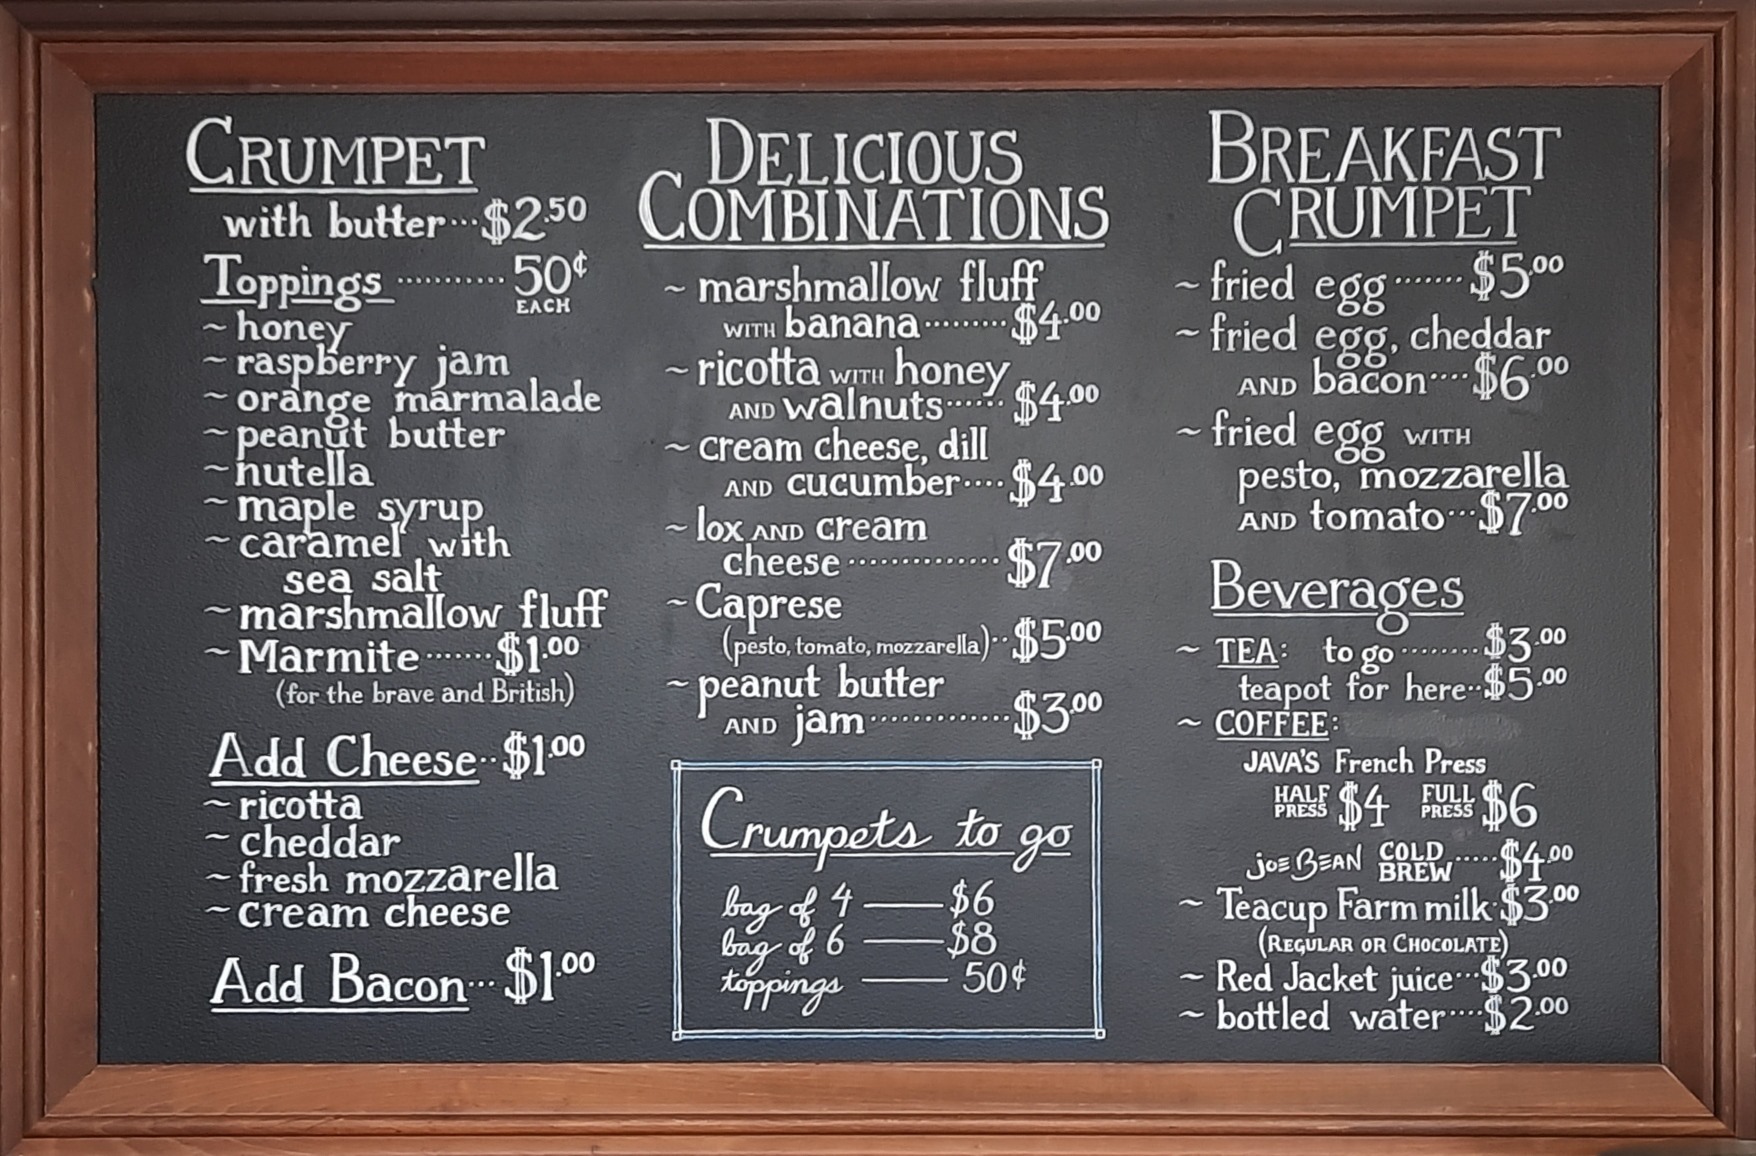 CRUMPET
with butter···$2.50
Toppings ··········· 50¢
EACH
~ honey
~ raspberry jam
~ orange marmalade
~ peanut butter
~ nutella
~ maple syrup
~ caramel with
sea salt
~ marshmallow fluff
~ Marmite·······$1.00
(for the brave and British)
Add Cheese··$1.00
~ ricotta
~ cheddar
~ fresh mozzarella
~ cream cheese
Add Bacon···$1.00
DELICIOUS
COMBINATIONS
~ marshmallow fluff
WITH banana·········$4.00
~ ricotta WITH honey
AND walnuts······$4.00
~ cream cheese, dill
AND cucumber····$4.00
~ lox AND cream
cheese ·············· $7.00
~ Caprese
(pesto, tomato, mozzarella)··$5.00
~ peanut butter
AND jam·············$3.00
Crumpets to go
bag of 4 —— $6
bag of 6 —— $8
toppings —— 50¢
BREAKFAST
CRUMPET
~ fried egg·······$5.00
~ fried egg, cheddar
AND bacon····$6.00
~ fried egg WITH
pesto, mozzarella
AND tomato···$7.00
Beverages
~ TEA: to go ········$3.00
teapot for here··$5.00
~ COFFEE:
JAVA'S French Press
HALF PRESS $4 FULL PRESS $6
JOE BEAN COLD BREW ·····$4.00
~ Teacup Farm milk·$3.00
(REGULAR OR CHOCOLATE)
~ Red Jacket juice···$3.00
~ bottled water····$2.00